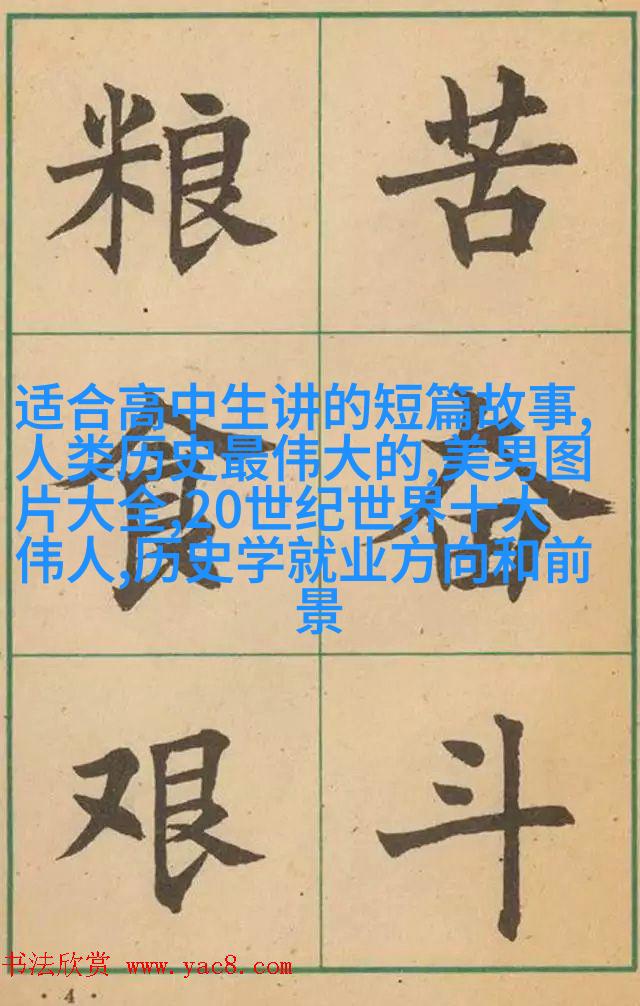 粮 苦
食 奋
艰 斗
适合高中生讲的短篇故事,
人类历史最伟大的,美男图
片大全,20世纪世界十大
伟人,历史学就业方向和前
景
书法欣赏 www.yac8.com
· 4 ·